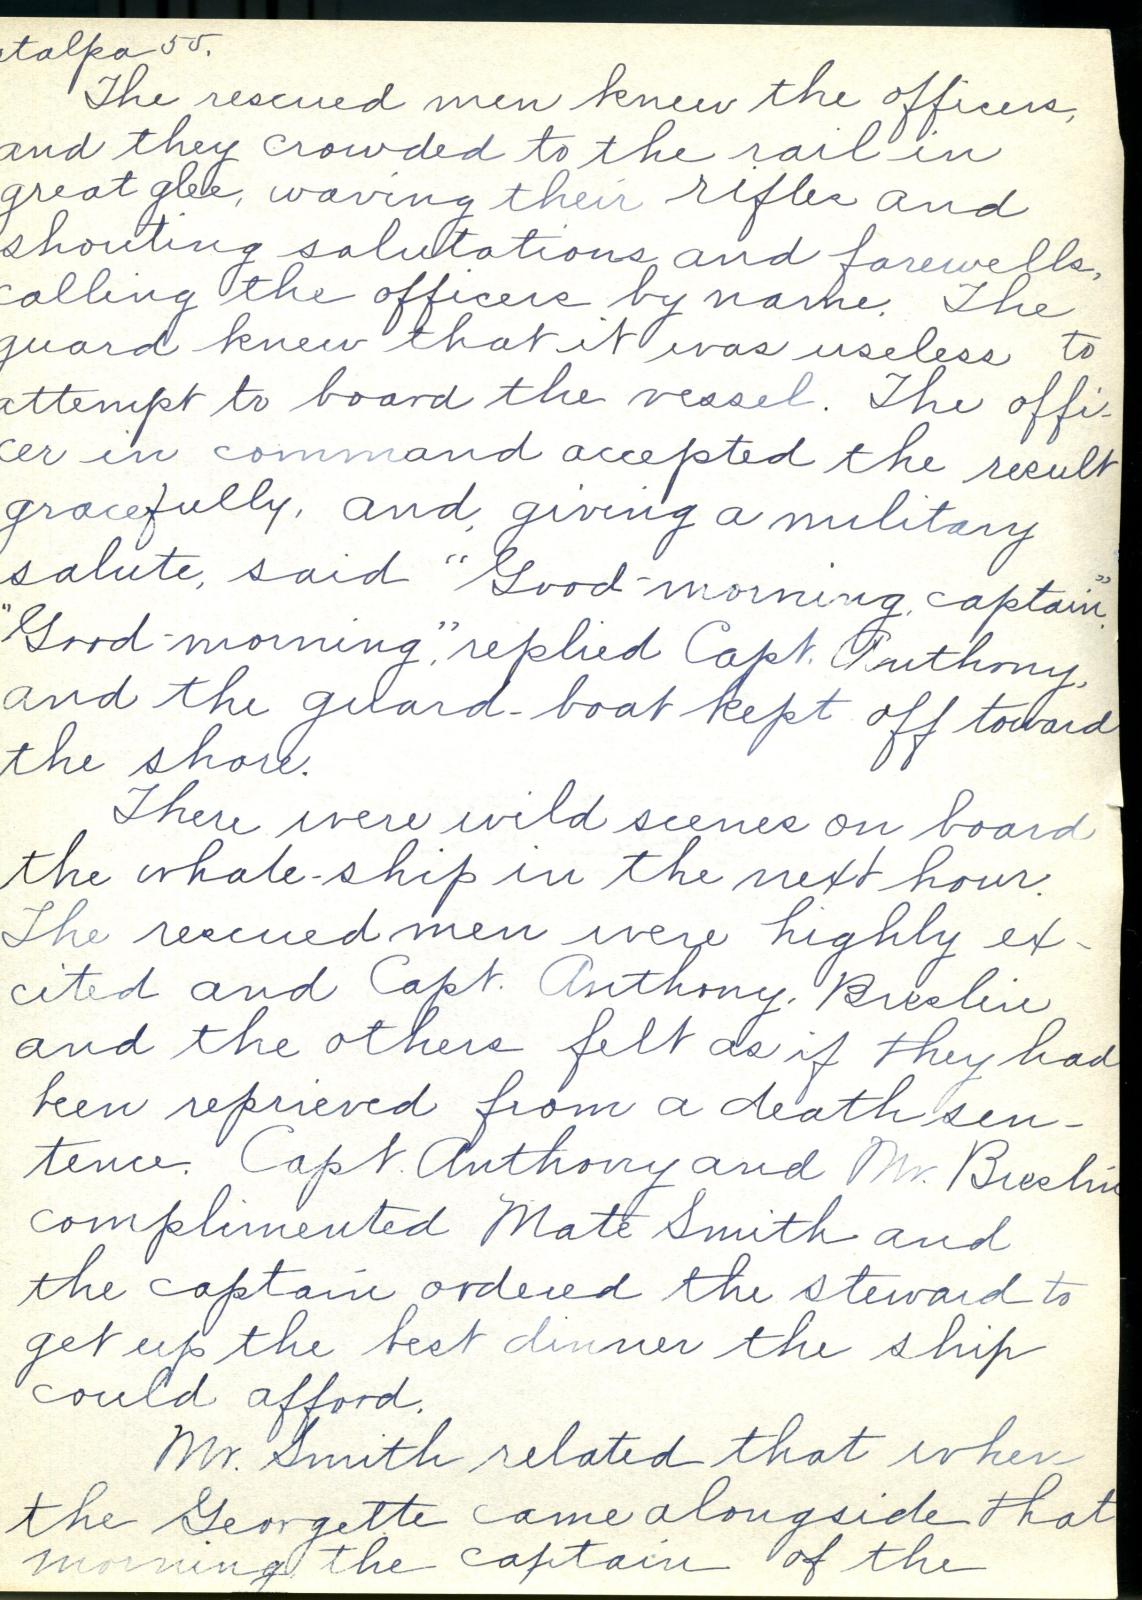 atalpa 55.
The rescued men knew the officers,
and they crowded to the rail in
great glee, waving their rifles and
shouting salutations and farewells,
calling the officers by name. The
guard knew that it was useless to
attempt to board the vessel. The offi-
cer in command accepted the result
gracefully, and, giving a military
salute, said "Good-morning, captain".
"Good-morning", replied Capt. Anthony,
and the guard-boat kept off toward
the shore.
There were wild scenes on board
the whale-ship in the next hour.
The rescued men were highly ex-
cited and Capt. Anthony, Breslin
and the others felt as if they had
been reprieved from a death sen-
tence. Capt. Anthony and Mr. Breslin
complimented Mate Smith and
the captain ordered the steward to
get up the best dinner the ship
could afford.
Mr. Smith related that when
the Georgette came alongside that
morning the captain of the